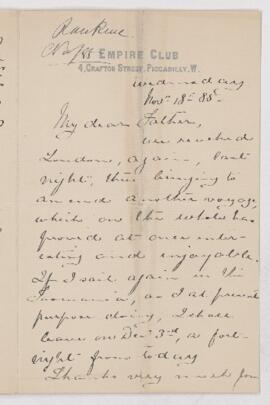 Rankine
EMPIRE CLUB
4, GRAFTON STREET, PICCADILLY, W.
Wednesday
Nov 18th 85
My dear Father,
we reached
London, again, last
night, thus bringing to
an end another voyage,
which on the whole has
proved at once inter-
esting and enjoyable.
If I sail again in the
as I at present
purpose doing, I shall
leave on Dec 3rd, a fort-
night from today
Thanks very much for